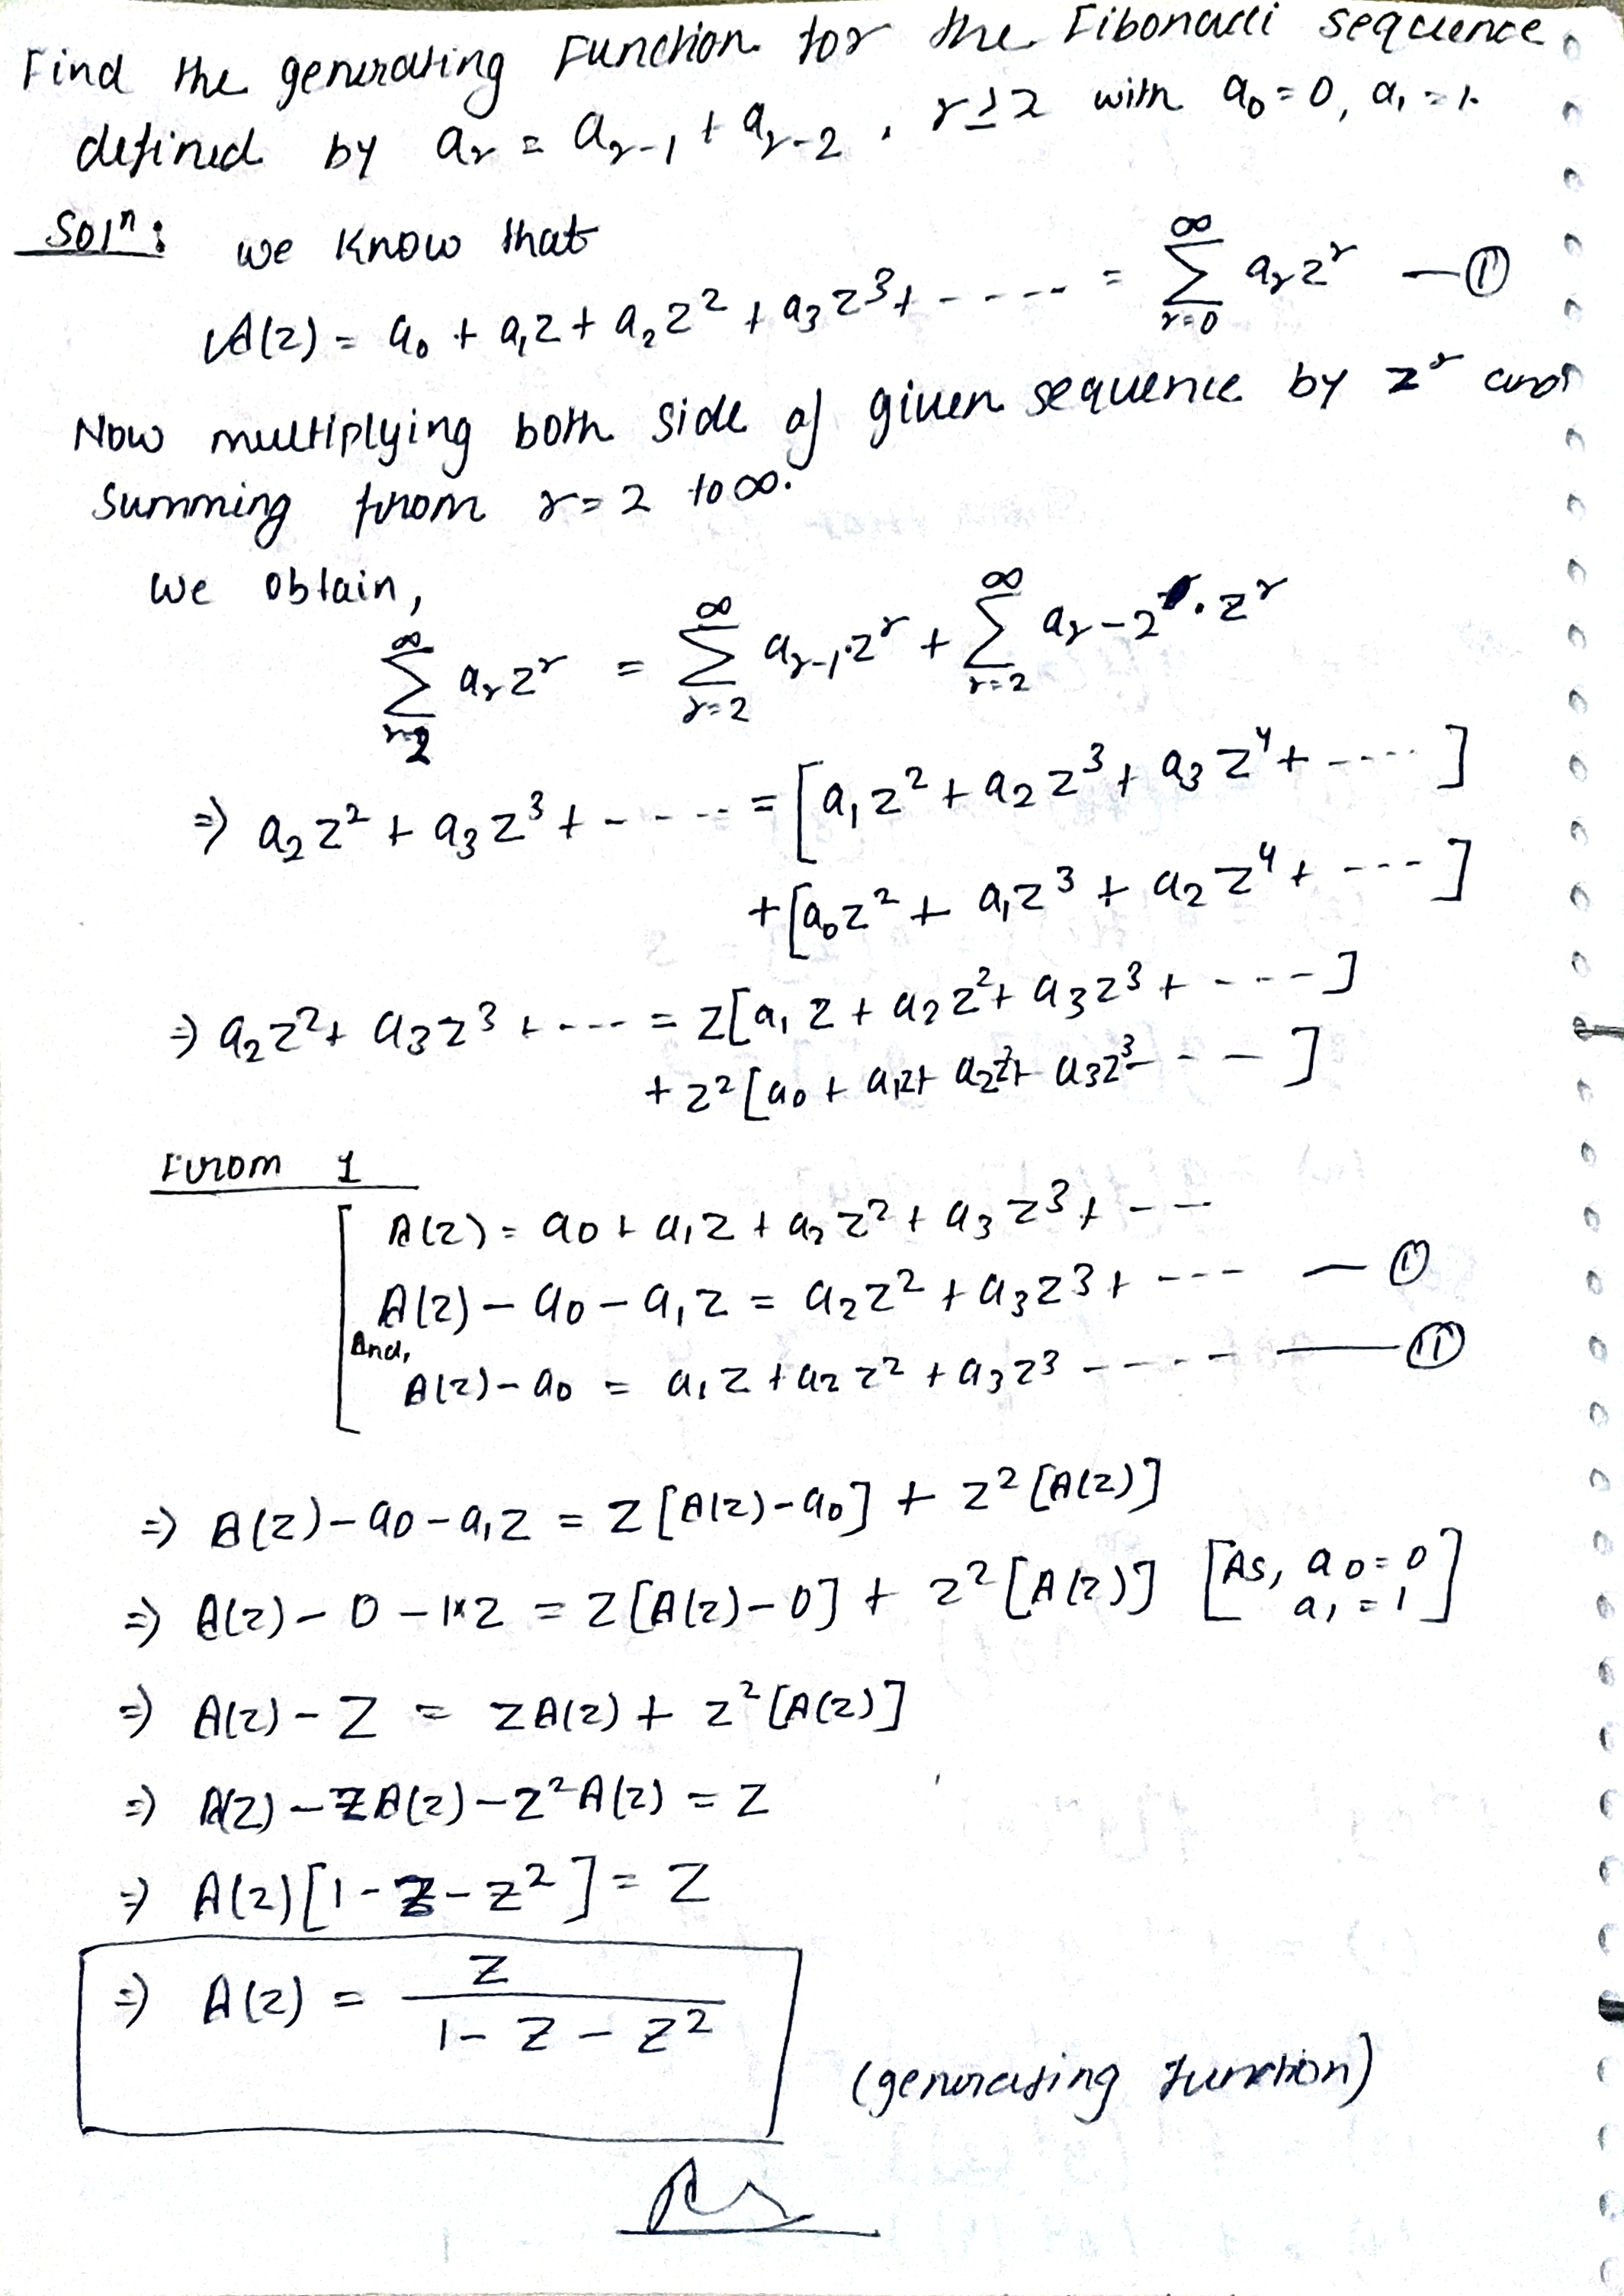 Find the generating Function for the Fibonacci sequence
defined by aᵣ = aᵣ₋₁ + aᵣ₋₂, r ≥ 2 with a₀ = 0, a₁ = 1.
Solⁿ: we know that
A(z) = a₀ + a₁z + a₂z² + a₃z³ + ----- = ∞∑r=0 aᵣzʳ — ①
Now multiplying both side of given sequence by zʳ and
summing from r=2 to ∞.
we obtain,
∞∑r=2 aᵣzʳ = ∞∑r=2 aᵣ₋₁·zʳ + ∞∑r=2 aᵣ₋₂·zʳ
⇒ a₂z² + a₃z³ + ----- = [a₁z² + a₂z³ + a₃z⁴ + -----]
+ [a₀z² + a₁z³ + a₂z⁴ + ----]
⇒ a₂z² + a₃z³ + ---- = z[a₁z + a₂z² + a₃z³ + ----]
+ z²[a₀ + a₁z + a₂z² + a₃z³ ---]
From 1
A(z) = a₀ + a₁z + a₂z² + a₃z³ + --
A(z) - a₀ - a₁z = a₂z² + a₃z³ + --- — ①
And,
A(z) - a₀ = a₁z + a₂z² + a₃z³ ----- — ⑪
⇒ A(z) - a₀ - a₁z = z[A(z) - a₀] + z²[A(z)]
⇒ A(z) - 0 - 1×z = z[A(z) - 0] + z²[A(z)] [As, a₀ = 0 a₁ = 1]
⇒ A(z) - z = zA(z) + z²[A(z)]
⇒ A(z) - zA(z) - z²A(z) = z
⇒ A(z)[1 - z - z²] = z
⇒ A(z) = z / 1 - z - z²
(generating function)